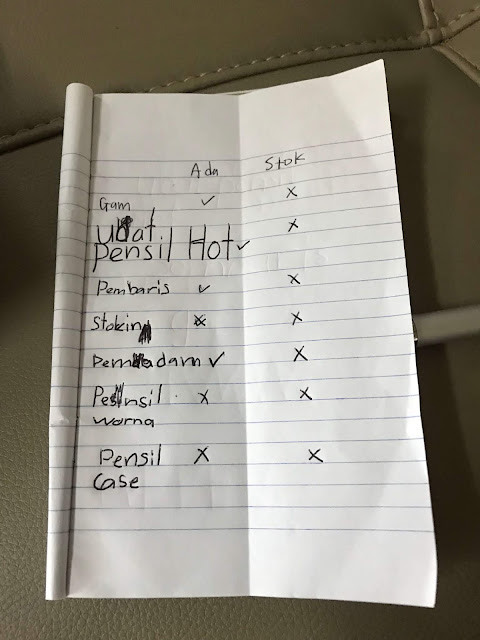 Ada Stok
Gam ✓ x
ubat x
pensil Hot ✓
Pembaris ✓ x
Stoking x x
Pemadam ✓ x
Pensil x x
warna
Pensil x x
Case